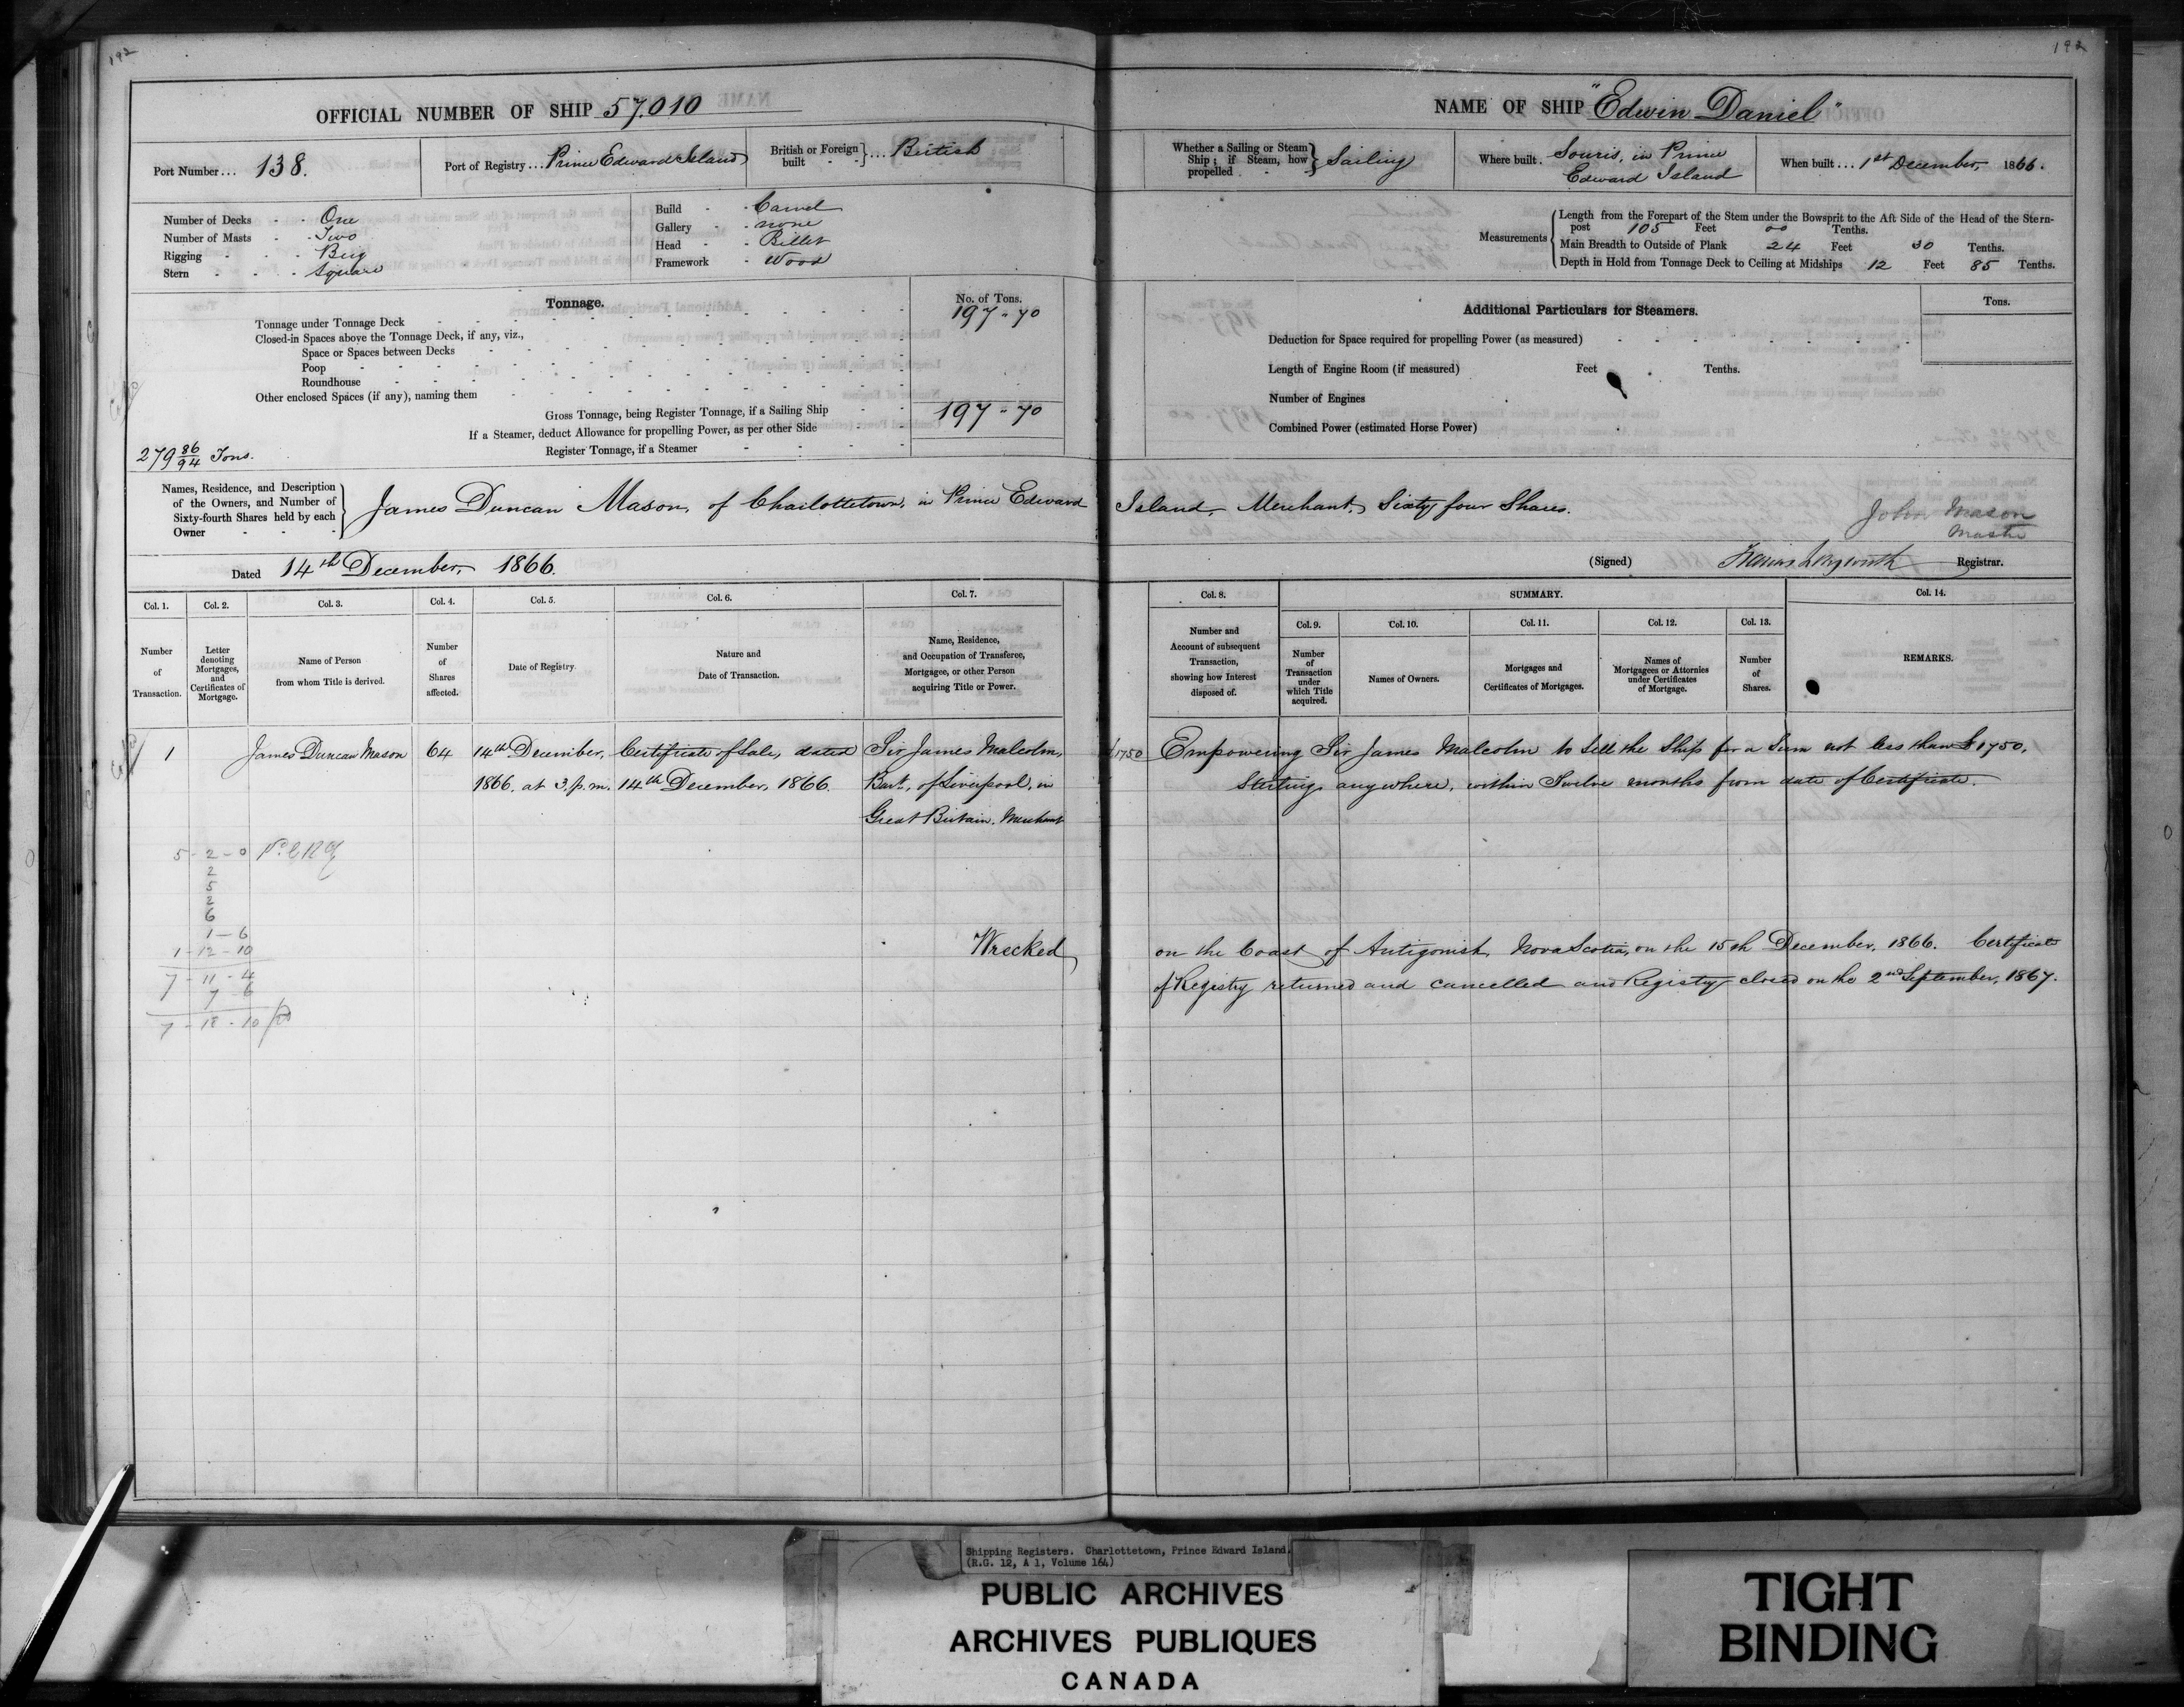 192
OFFICIAL NUMBER OF SHIP 57.010
Port Number... 138.
Port of Registry... Prince Edward Island
British or Foreign built } ... British
Number of Decks - - One
Number of Masts - - Two
Rigging - - - Brig
Stern - - - Square
Build - - Carvel
Gallery - - none
Head - - Billet
Framework - Wood
Tonnage.
No. of Tons.
Tonnage under Tonnage Deck 197 " 70
Closed-in Spaces above the Tonnage Deck, if any, viz.,
Space or Spaces between Decks
Poop
Roundhouse
Other enclosed Spaces (if any), naming them
Gross Tonnage, being Register Tonnage, if a Sailing Ship 197 " 70
If a Steamer, deduct Allowance for propelling Power, as per other Side
Register Tonnage, if a Steamer
279 86/94 Tons.
Names, Residence, and Description
of the Owners, and Number of
Sixty-fourth Shares held by each
Owner
James Duncan Mason, of Charlottetown, in Prince Edward
Dated 14th December, 1866.
Col. 1. Col. 2. Col. 3. Col. 4. Col. 5. Col. 6. Col. 7.
Number of Transaction.
Letter denoting Mortgages, and Certificates of Mortgage.
Name of Person from whom Title is derived.
Number of Shares affected.
Date of Registry.
Nature and Date of Transaction.
Name, Residence, and Occupation of Transferee, Mortgagee, or other Person acquiring Title or Power.
1 James Duncan Mason 64 14th December, Certificate of Sale, dated Sir James Malcolm,
1866. at 3. p.m. 14th December, 1866. Bart., of Liverpool, in
Great Britain. Merchant
5 - 2 - 0
2
5
2
6
1 - 6
1 - 12 - 10
7 - 11 - 4
7 - 6
7 - 18 - 10
Wrecked
192
NAME OF SHIP "Edwin Daniel"
Whether a Sailing or Steam Ship; if Steam, how propelled } Sailing
Where built. Souris, in Prince
Edward Island
When built... 1st December, 1866.
Measurements
Length from the Forepart of the Stem under the Bowsprit to the Aft Side of the Head of the Stern-
post 105 Feet 00 Tenths.
Main Breadth to Outside of Plank 24 Feet 30 Tenths.
Depth in Hold from Tonnage Deck to Ceiling at Midships 12 Feet 85 Tenths.
Additional Particulars for Steamers.
Tons.
Deduction for Space required for propelling Power (as measured)
Length of Engine Room (if measured) Feet Tenths.
Number of Engines
Combined Power (estimated Horse Power)
Island, Merchant, Sixty four Shares.
John Mason
Master
(Signed) Registrar.
Col. 8. SUMMARY. Col. 14.
Col. 9. Col. 10. Col. 11. Col. 12. Col. 13.
Number and Account of subsequent Transaction, showing how Interest disposed of.
Number of Transaction under which Title acquired.
Names of Owners.
Mortgages and Certificates of Mortgages.
Names of Mortgagees or Attornies under Certificates of Mortgage.
Number of Shares.
REMARKS.
£1750 Empowering Sir James Malcolm to sell the Ship for a Sum not less than £1750,
Sterling, anywhere, within Twelve months from date of Certificate.
on the Coast of Antigonish, Nova Scotia, on the 15th December, 1866. Certificate
of Registry returned and cancelled and Registry closed on the 2nd September, 1867.
Shipping Registers. Charlottetown, Prince Edward Island.
(R.G. 12, A 1, Volume 164)
PUBLIC ARCHIVES
ARCHIVES PUBLIQUES
CANADA
TIGHT
BINDING